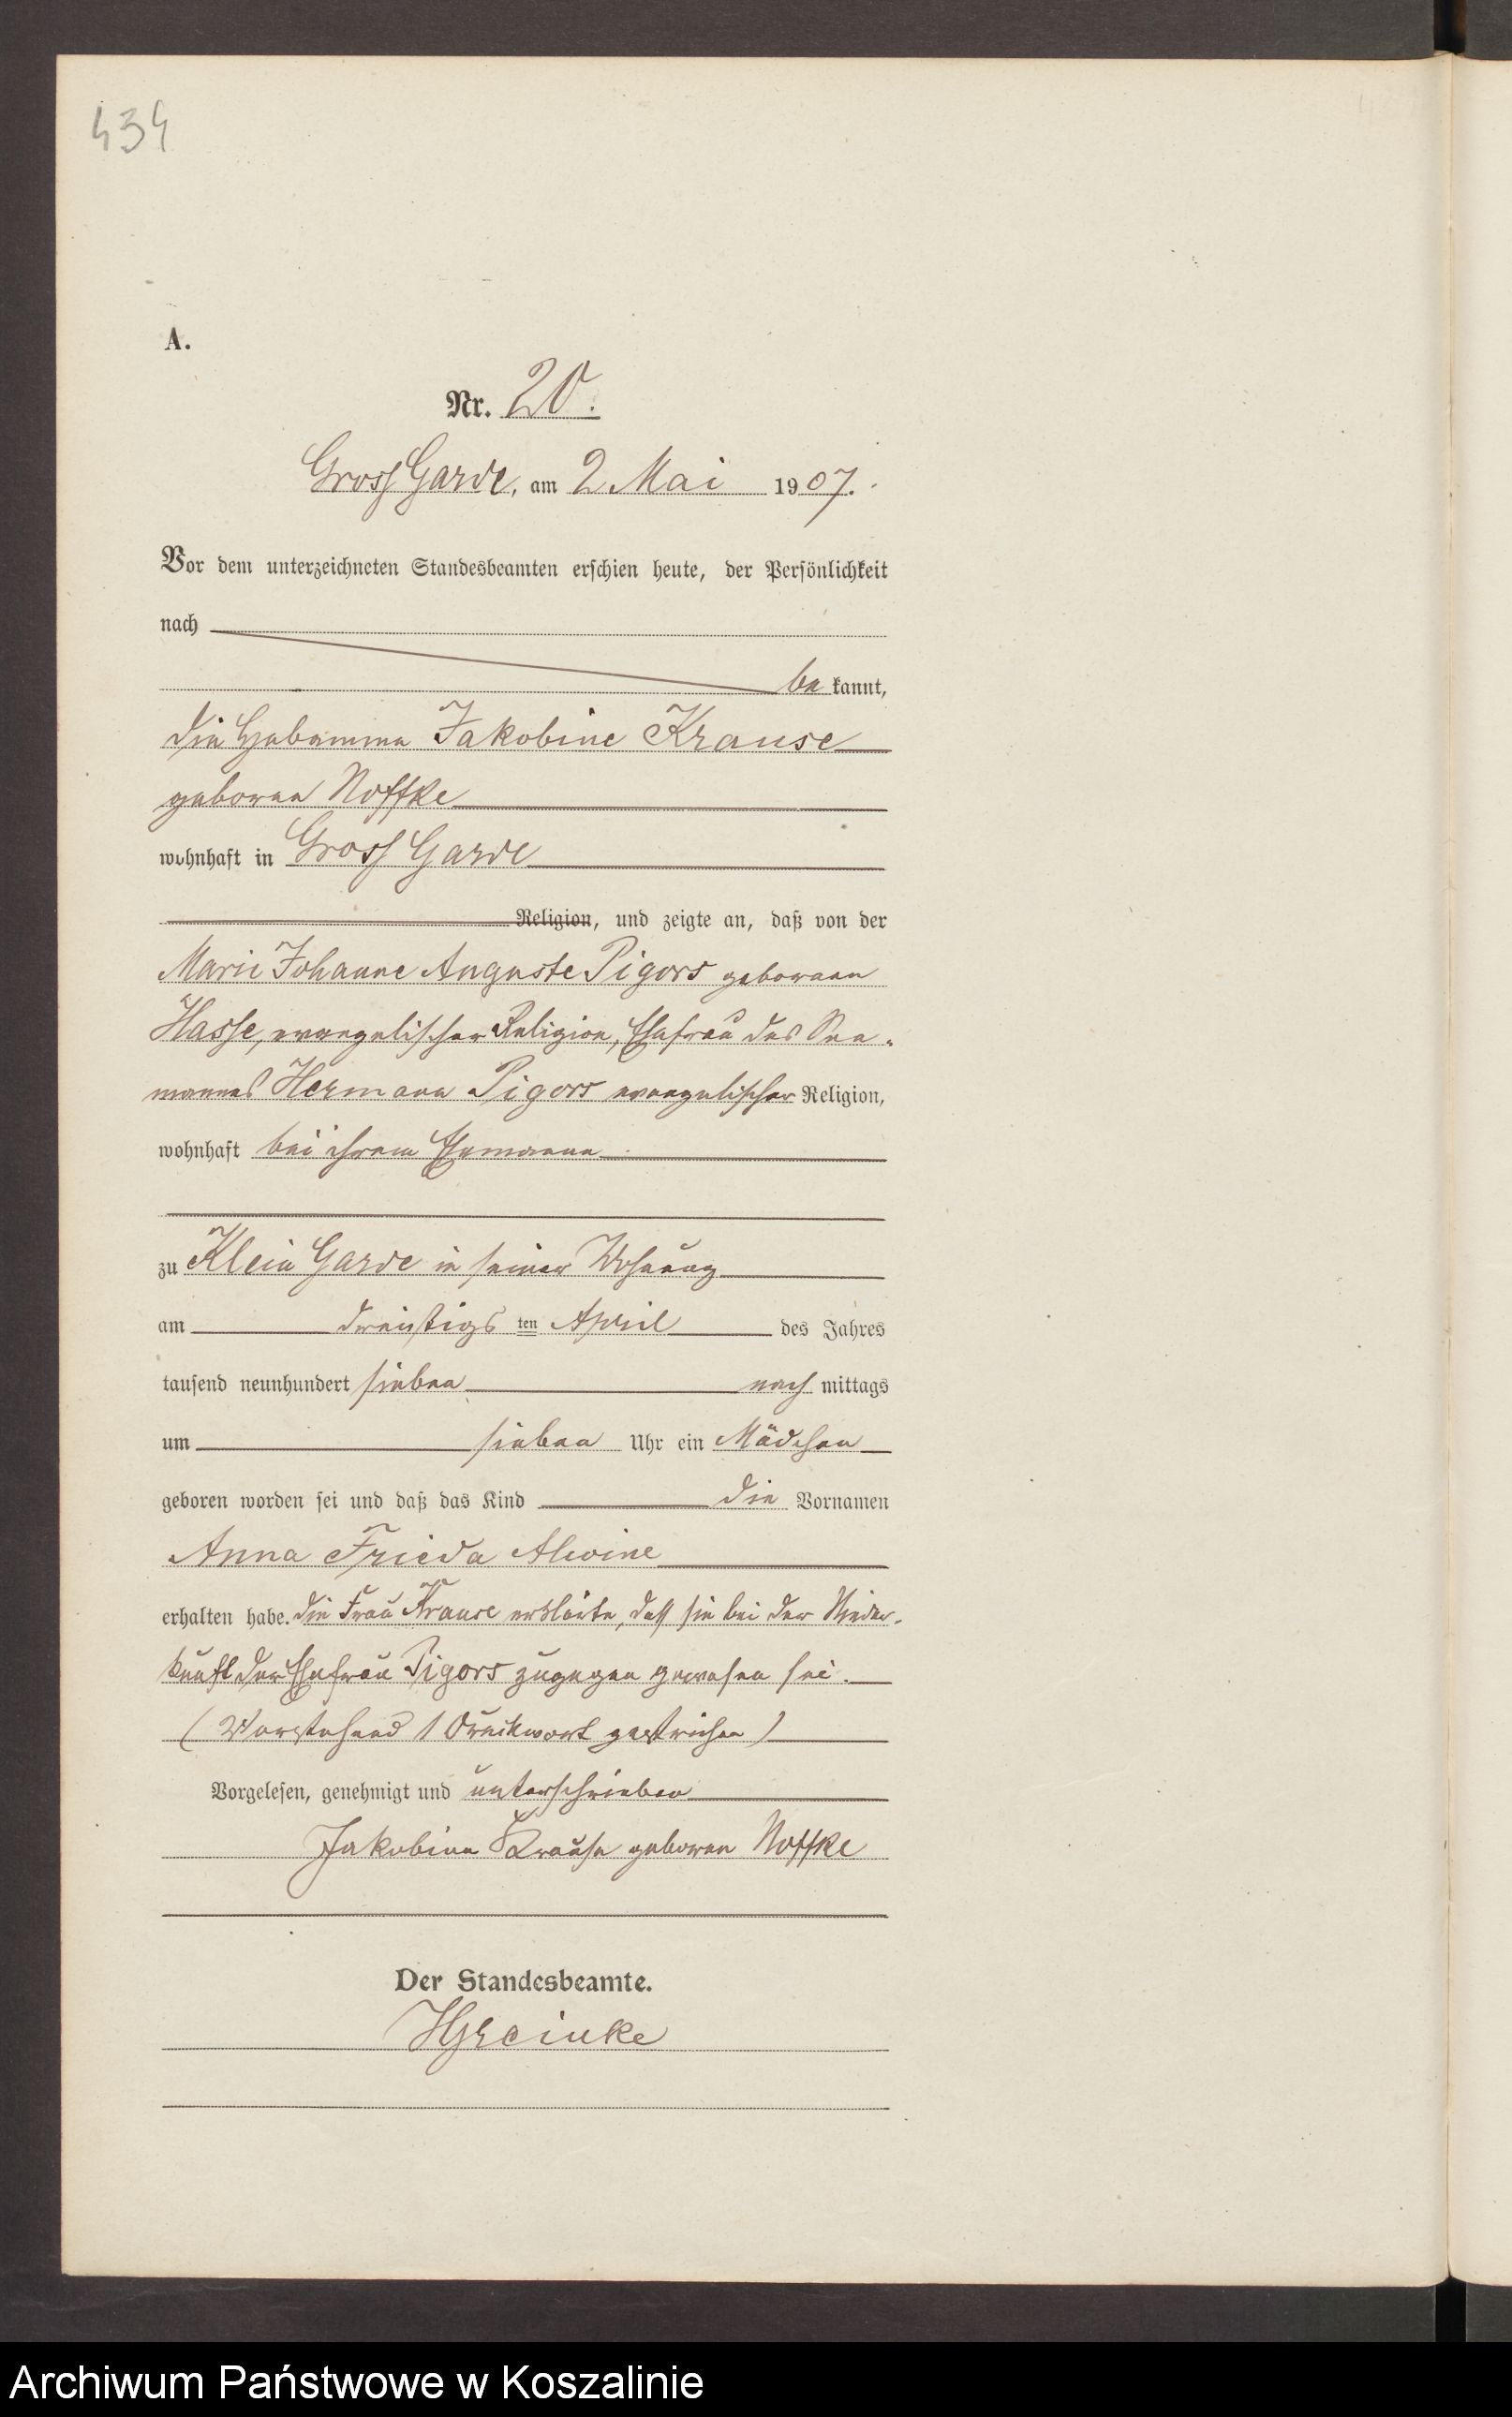 434
A.
Nr. 20.
Gross Garde, am 2 Mai 1907.
Vor dem unterzeichneten Standesbeamten erschien heute, der Persönlichkeit
nach
be kannt,
die Hebamme Jakobine Krause
geborene Noffke
wohnhaft in Gross Garde
Religion, und zeigte an, daß von der
Marie Johanne Auguste Pigors geborenen
Hasse, evangelischer Religion, Ehefrau des See-
mannes Hermann Pigors evangelischer Religion,
wohnhaft bei ihrem Ehemanne
zu Klein Garde in seiner Wohnung
am dreißigs ten April des Jahres
tausend neunhundert sieben nach mittags
um sieben Uhr ein Mädchen
geboren worden sei und daß das Kind die Vornamen
Anna Frieda Alwine
erhalten habe. Die Frau Krause erklärte, daß sie bei der Nieder-
kunft der Ehefrau Pigors zugegen gewesen sei.
(Vorstehend 1 Druckwort gestrichen)
Vorgelesen, genehmigt und unterschrieben
Jakobine Krause geborene Noffke
Der Standesbeamte.
Archiwum Państwowe w Koszalinie